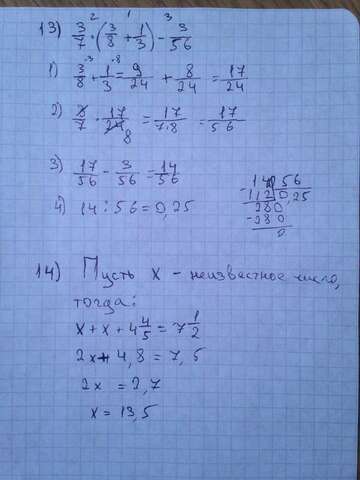 13) 3/7 · (3/8 + 1/3) - 3/56
1) 3/8 + 1/3 = 9/24 + 8/24 = 17/24
2) 3/7 · 17/24 = 17/7·8 = 17/56
3) 17/56 - 3/56 = 14/56
4) 14 : 56 = 0,25
14 56
112 0,25
280
-280
0
14) Пусть x - неизвестное число,
тогда:
x + x + 4 4/5 = 7 1/2
2x + 4,8 = 7,5
2x = 2,7
x = 13,5